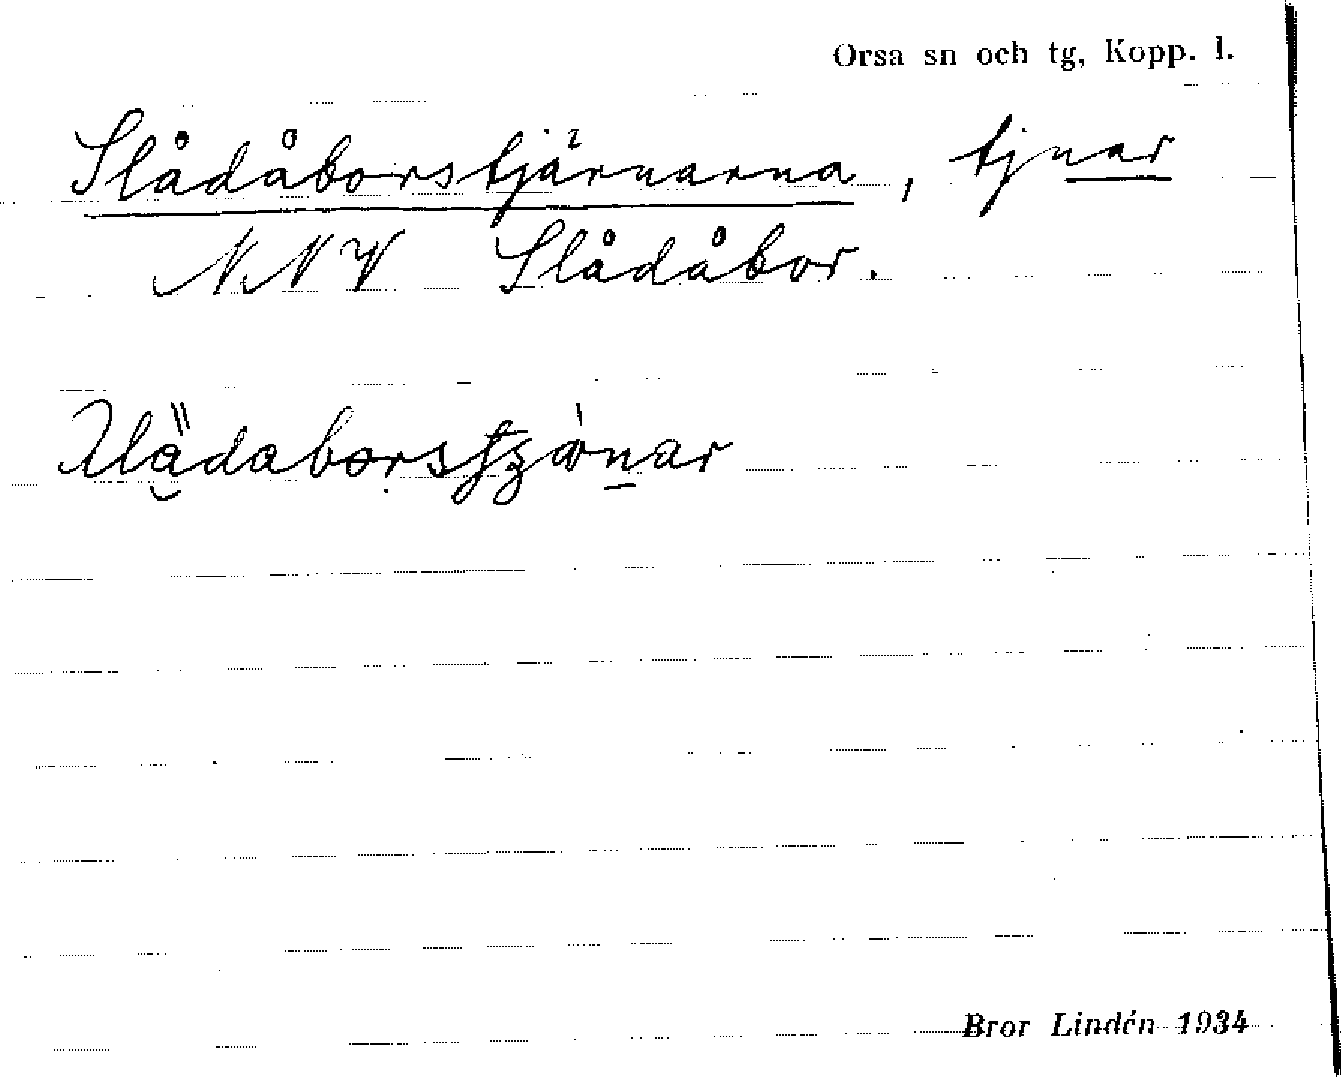 Orsa sn och tg, Kopp. l.
Slådåborstjärnarna, tjnar
NNV Slådåbor.
Bror Lindén 1934